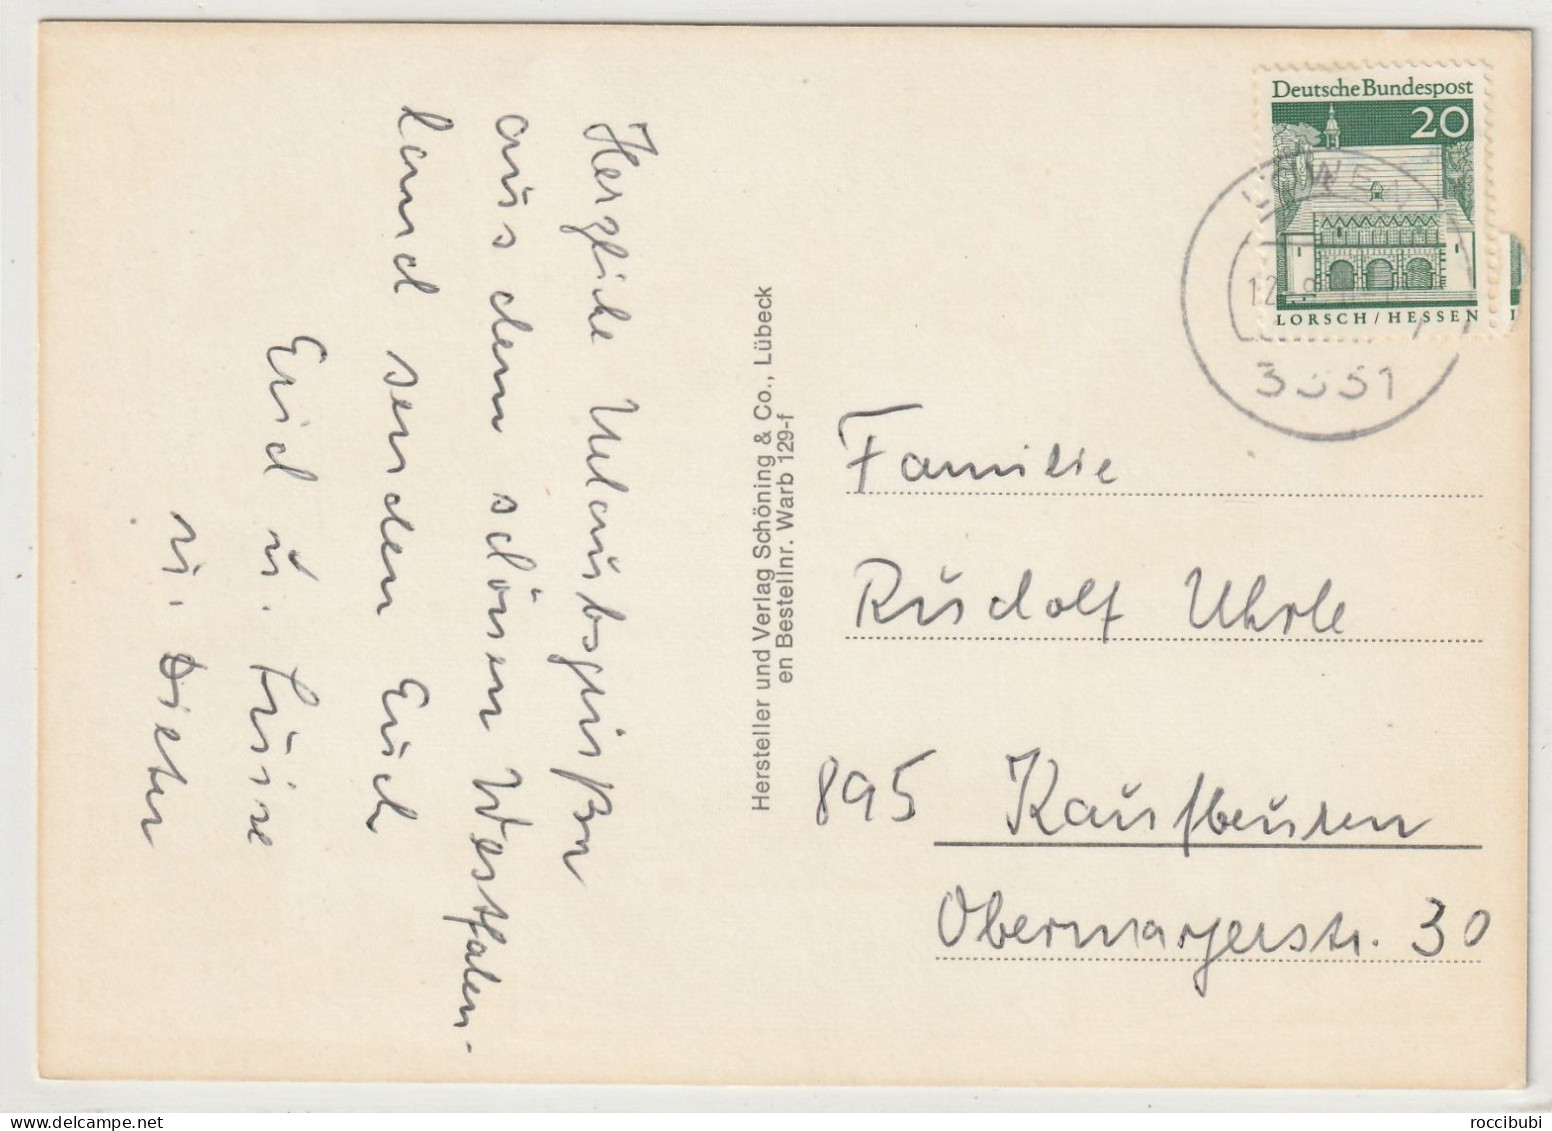 Herzliche Urlaubsgrüße
aus dem schönen Westfalen-
land senden Euch
Erich u. Luise
u. Dieter
Hersteller und Verlag Schöning & Co., Lübeck
en Bestellnr. Warb 129-f
Deutsche Bundespost
20
LORSCH/HESSEN
Familie
Rudolf Uhrle
895 Kaufbeuren
Obermayerstr. 30
roccibubi